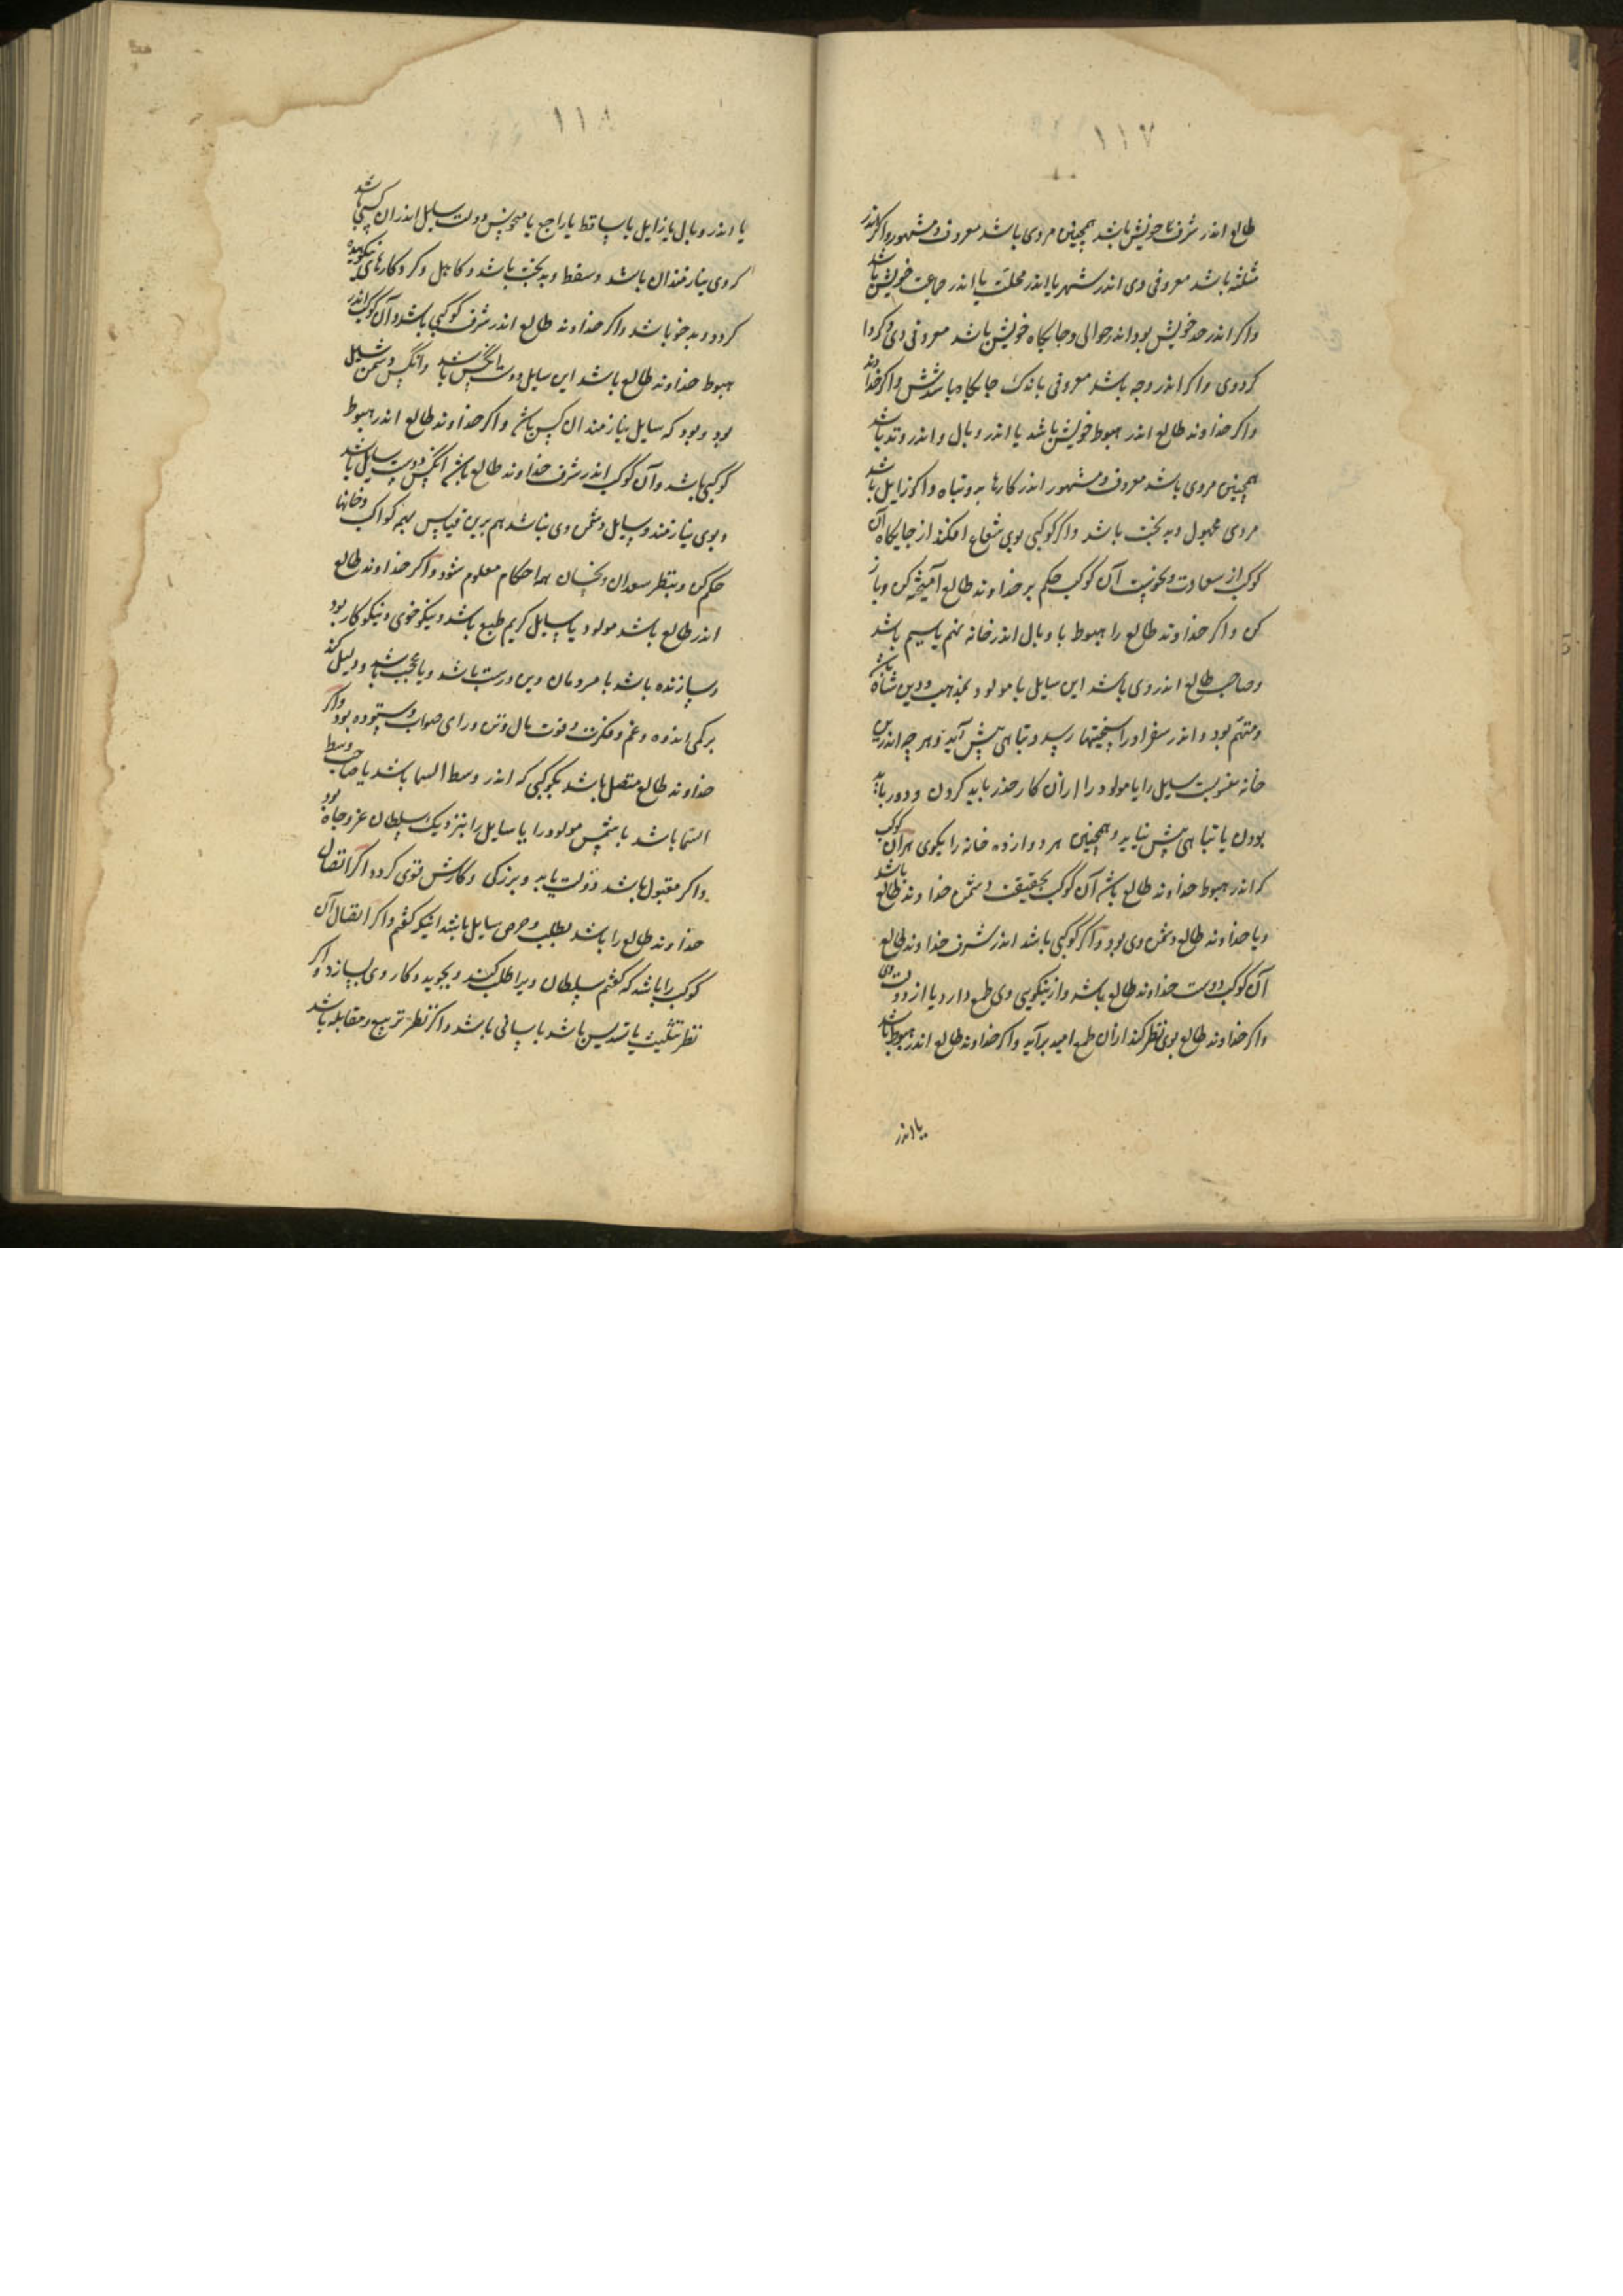 ١١٧
طالع اندر شرف خویش باشد همچنین مردی باشد معروف و مشهور و اکر اندر
مثلثه باشد معروفی وی اندر شهر یا اندر محلت یا اندر جماعت خویش باشد
واکر اندر حد خویش بود اندر حوالی و جایکاه خویش باشد معروفی وی
کردوی واکر اندر وجه باشد معروفی باندک جایکاه باشدش واکر خداوند
واکر خداوند طالع اندر هبوط خویش باشد یا اندر وبال و اندر وتد باشد
همچنین مردی باشد معروف و مشهور اندر کارها بد و تباه واکر زایل باشد
مردی مجهول و بدبخت باشد واکر کوکبی بوی شعاع افکند از جایکاه آن
کوکب از سعادت و نحوست آن کوکب حکم بر خداوند طالع آمیخته کن و باز
کن واکر خداوند طالع را هبوط یا وبال اندر خانه نهم یا سیم باشد
وصاحب طالع اندر وی باشد این سایل یا مولود بمذهب و دین
ومتهم بود و اندر سفر اورا سختیها رسد و تباهی پیش آید و هر چه اندرین
خانه منسوبست سایل را یا مولود را از آن کار حذر باید کردن و دور باید
بودن یا تباهی پیش نیاید و همچنین هر دوازده خانه را بکوی هر آن کوکب
که اندر هبوط خداوند طالع باشد آن کوکب بحقیقت دشمن خداوند طالع باشد
ویا خداوند طالع دشمن وی بود واکر کوکبی باشد اندر شرف خداوند طالع
آن کوکب دوست خداوند طالع باشد و از نیکویی وی طمع دارد یا از دوستی وی
واکر خداوند طالع بوی نظر کند از آن طمع امید برآید واکر خداوند طالع اندر هبوط باشد
یا اندر
١١٨
یا اندر وبال یا زایل یا ساقط یا راجع یا منحوس دوست سایل اندر آن کسی باشد
کز وی نیازمندان باشد و سقط و بدبخت باشد و کاهل و کرد کارهای نکوهیده
کردد و بدخو باشد واکر خداوند طالع اندر شرف کوکبی باشد و آن کوکب اندر
هبوط خداوند طالع باشد این سایل دوست آنکس باشد و آنکس دشمن سایل
بود و بود که سایل نیازمند آن کس باشد واکر خداوند طالع اندر هبوط
کوکبی باشد و آن کوکب اندر شرف خداوند طالع باشد آنکس دوست سایل باشد
وبوی نیازمند و سایل دشمن وی باشد هم برین قیاس بهمه کواکب و خانها
حکم کن و بنظر سعدان و نحسان همه احکام معلوم شود واکر خداوند طالع
اندر طالع باشد مولود یا سایل کریم طبع باشد و نیکو خوی و نیکو کار بود
وسازنده باشد با مردمان و دین درست باشد و یا عجب باشد و دلیل کند
بر کمی اندوه و غم و فکرت و قوت بال و تن و رای صواب و ستوده بود واکر
خداوند طالع متصل باشد بکوکبی که اندر وسط السما باشد یا صاحب وسط
السما باشد یا شمس مولود را یا سایل را بنزدیک سلطان عز و جاه بود
واکر مقبول باشد دولت یابد و بزرکی و کارش قوی کردد اکر اتصال
خداوند طالع را باشد بطلب و حرص سایل باشد اینکه کفتم واکر اتصال آن
کوکب را باشد که کفتم سلطان ویرا طلب کند و بجوید و کار وی بسازد واکر
نظر تثلیث یا تسدیس باشد باسانی باشد واکر نظر تربیع و مقابله باشد